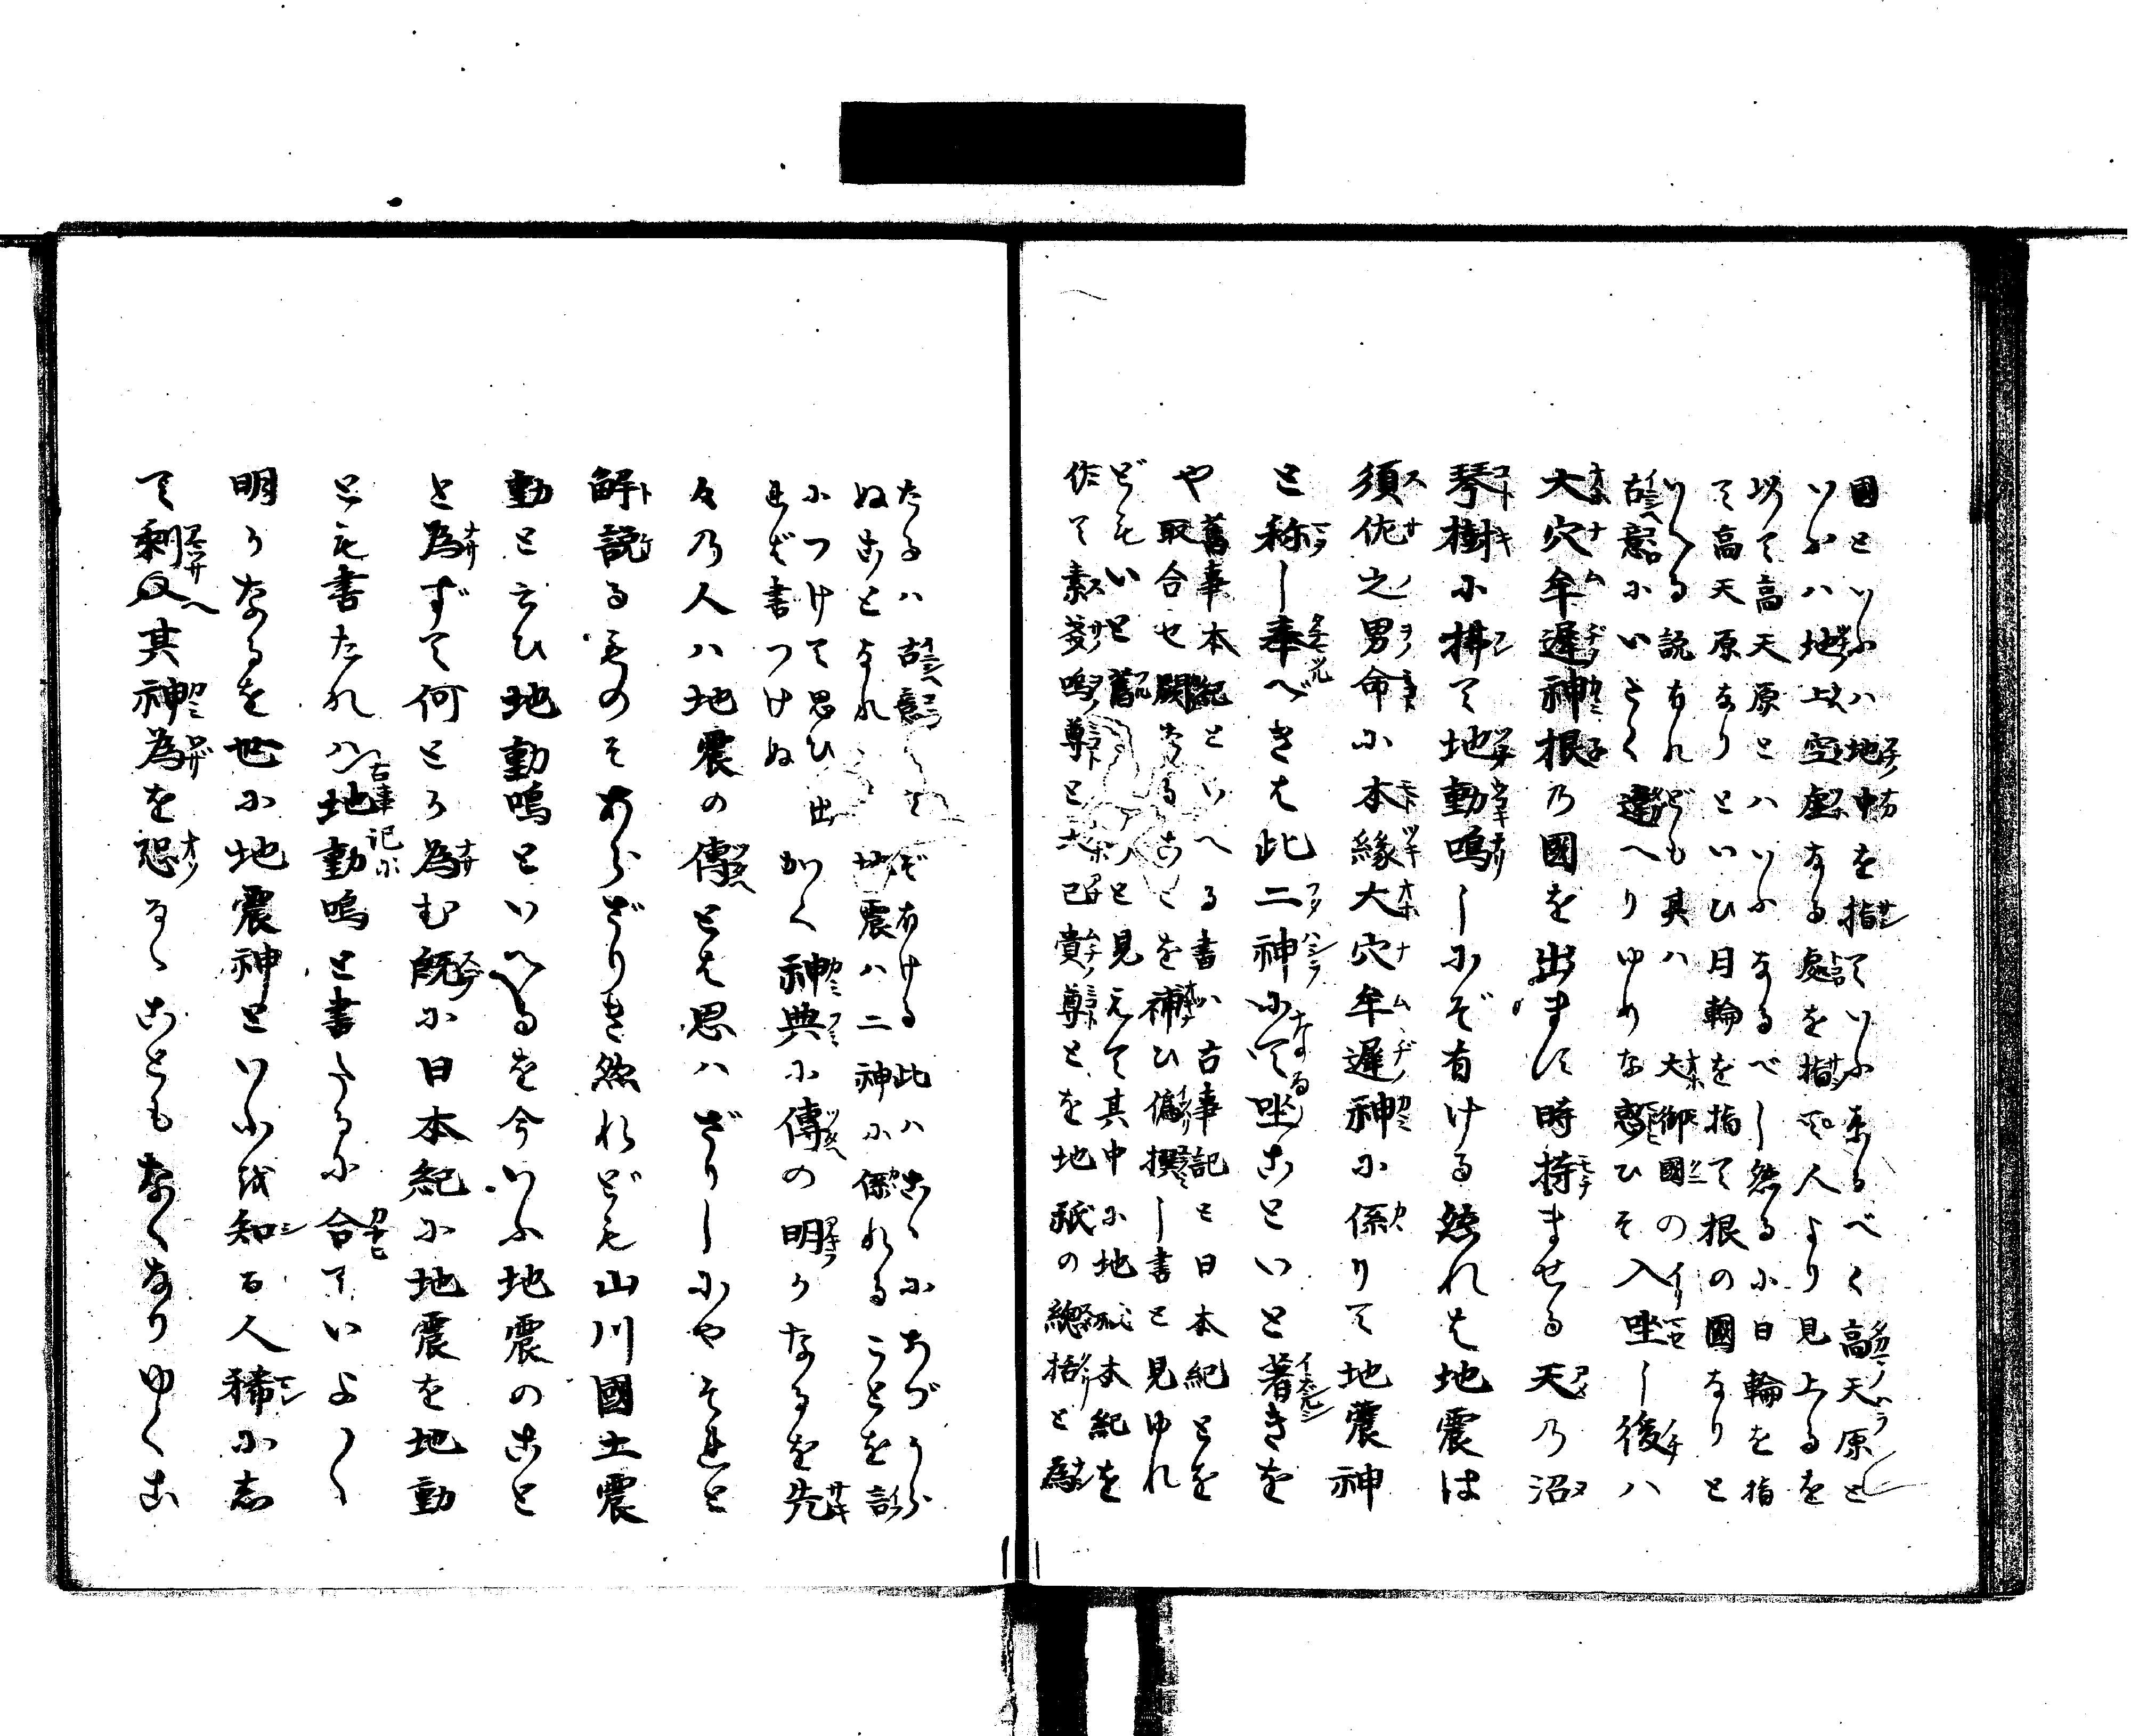 国といふハ地中を指ていふ事るべく高天原と
いふハ地上空虚なる處を指て人より見上るを
以て高天原とハいふなるべし然るに日輪を指
て高天原なりといひ日輪を指て根の國なりと
いへる説あれども其ハ大御國の
古意にいたく違へりゆめな惑ひそ入坐し後ハ
大穴牟遲神根乃國を出ます時持ませる天乃沼
琴樹に拂て地動鳴しにぞ有ける然れば地震は
須佐之男命に本縁大穴牟遲神に係りて地震神
と称し奉べきは此二神にて坐ことといと著きを
や舊事本紀といへる書ハ古事記と日本紀とを
取合せ闕たることを補ひ偽撰し書と見ゆれ
どもいと舊と見えて其中に地祇本紀を
作て素戔嗚尊と大己貴尊とを地祇の總括と為
たるハ古意にてぞ有ける此ハこゝにあづからぬことなれ
ど地震ハ二神に係れることを記
につけて思ひ出
れば書つけぬかく神典に傳の明かなるを先
々乃人ハ地震の傳とは思ハざりしにやそれと
解説るものそあらざりき然れども山川國土震
動と云ひ地動鳴といへるを今いふ地震のこと
と為ずて何とか為む既に日本紀に地震を地動
とも書たれハ古事記に地動鳴と書たるに合ていよゝ
明かなるを世に地震神といふを知る人稀に志
て剩又其神為を恐るゝこともなくなりゆくこ